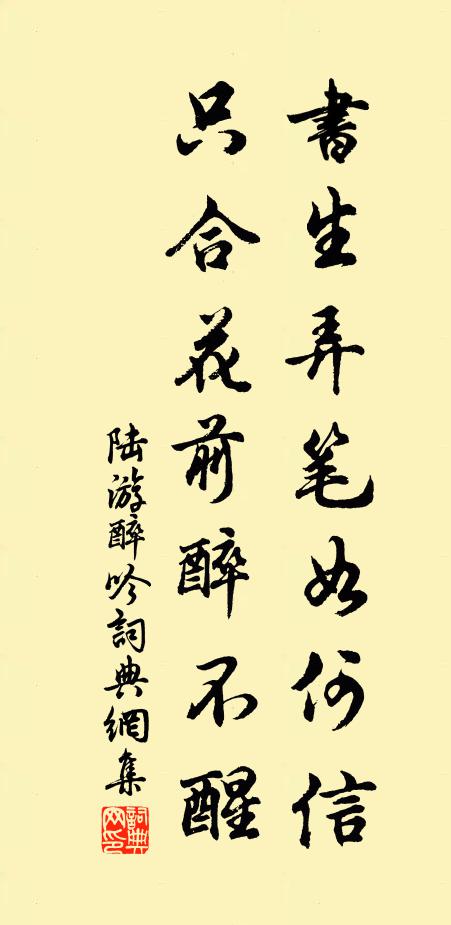 書生弄笔如何信
只合花前醉不醒
陆游醉吟詞典網集
詞典网印